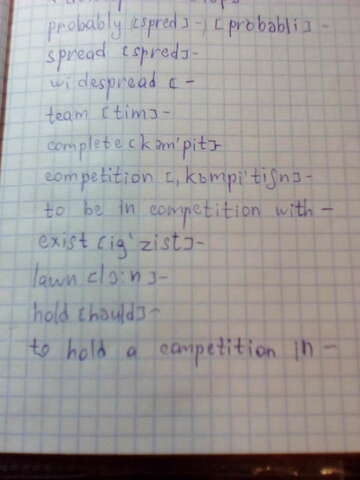 probably [spred]-, [probabli] -
spread [spred]-
widespread [ -
team [tim]-
complete [kəm'pit]-
competition [,kɒmpi'tiʃn]-
to be in competition with -
exist [ig'zist]-
lawn [lɔ:n]-
hold [hould]-
to hold a competition in -